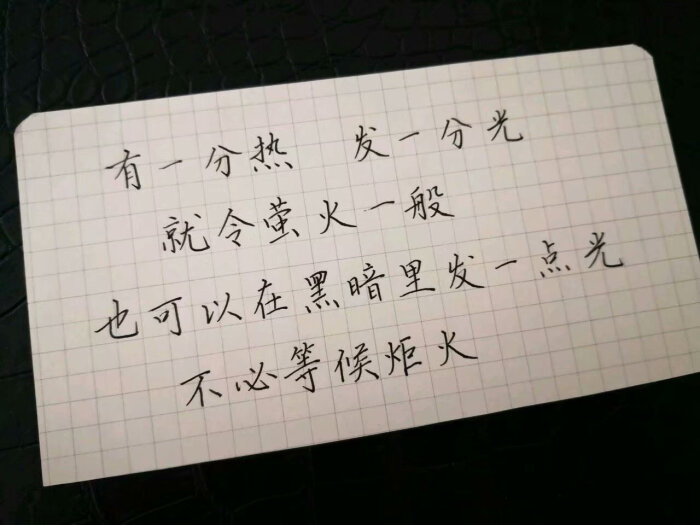 有一分热 发一分光
就令萤火一般
也可以在黑暗里发一点光
不必等候炬火